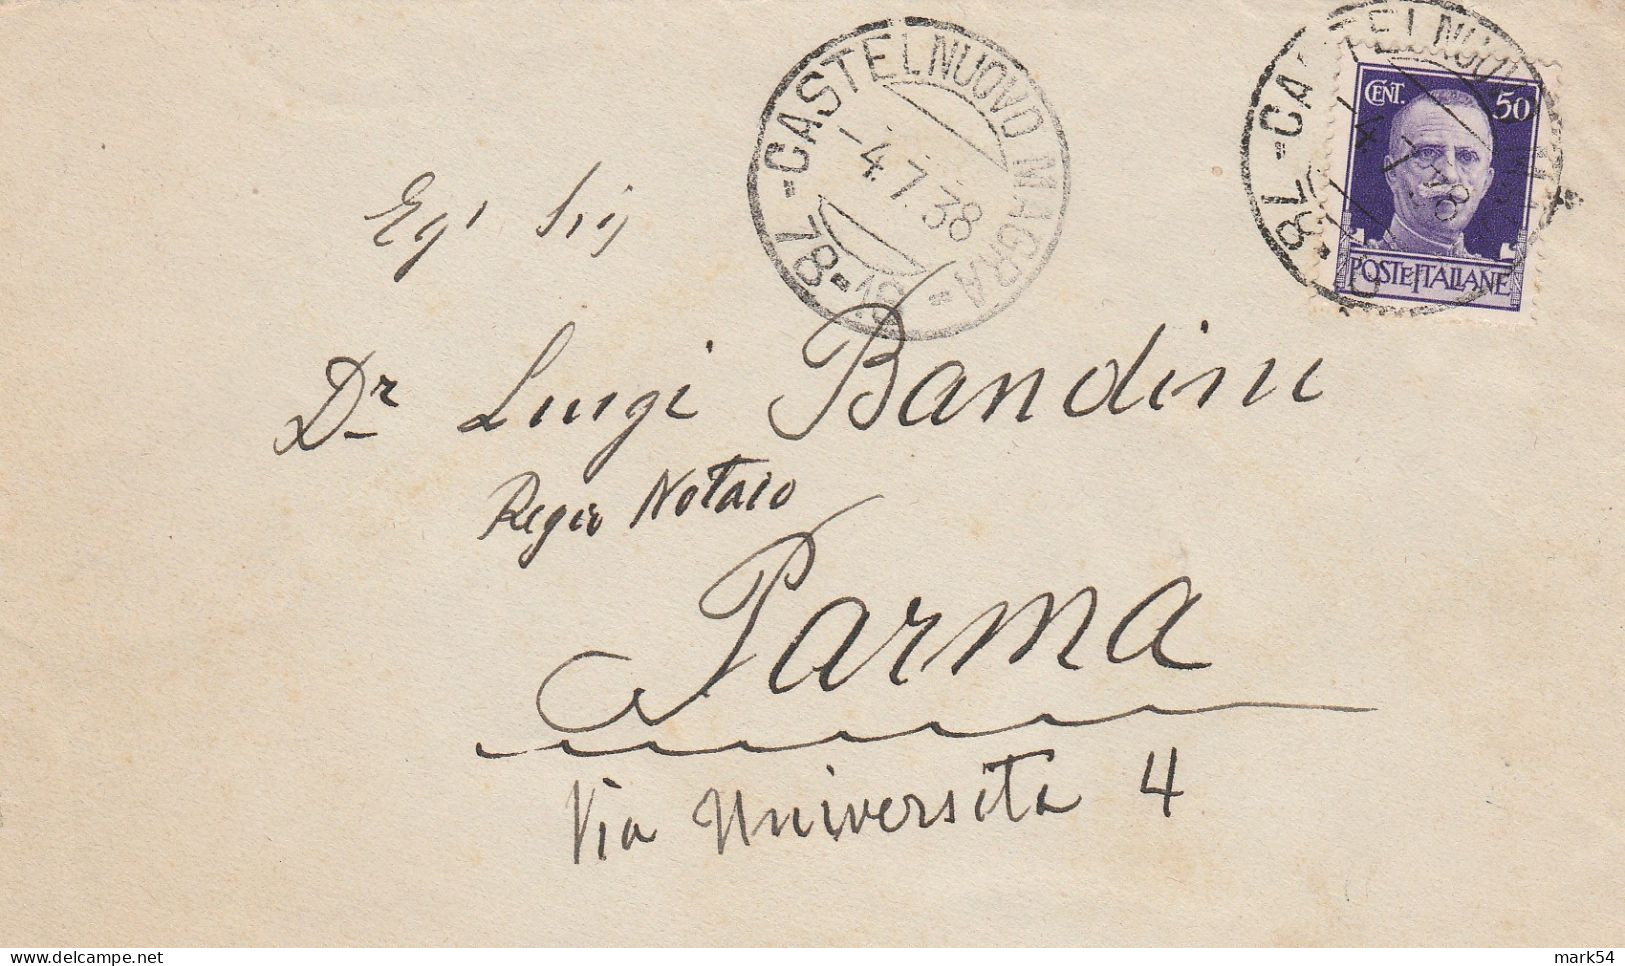 78 - CASTELNUOVO MAGRA =
- 4.7.38
CENT. 50
POSTE ITALIANE
Egr Sig
Dr Luigi Bandini
Regio Notaio
Parma
Via Universita 4
delcampe.net
mark54